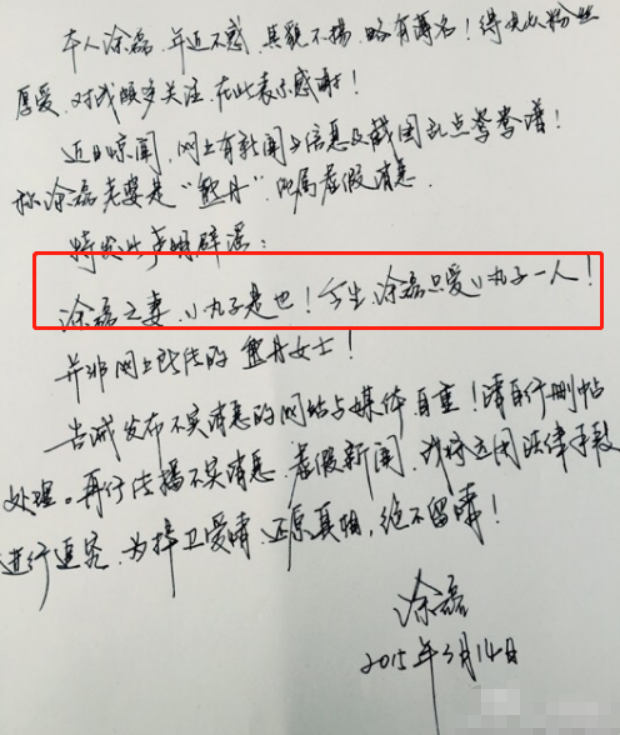 本人涂磊,年近不惑,其貌不扬,略有薄名!得大众粉丝
厚爱,对我颇多关注,在此表示感谢!
近日惊闻,网上有新闻与信息及截图乱点鸳鸯谱!
称涂磊老婆是“熊丹”,纯属虚假消息.
特发此声明辟谣:
涂磊之妻,小丸子是也!今生,涂磊只爱小丸子一人!
并非网上所传的熊丹女士!
告诫发布不实消息的网站与媒体,自重!请自行删帖
处理。再行传播不实消息,虚假新闻,我将运用法律手段
进行追究,为捍卫爱情,还原真相,绝不留情!
涂磊
2015年3月14日